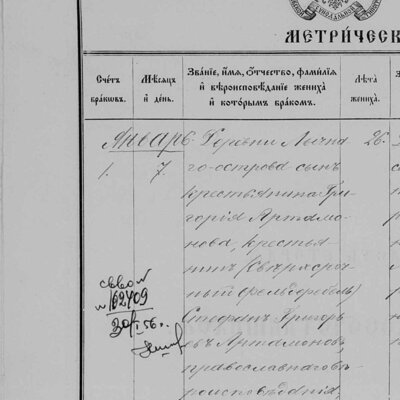 МЕТРИ́ЧЕСК
Сче́тъ бра́ковъ.
Мѣ́сяцъ и де́нь.
Зва́нiе, и́мя, о́тчество, фами́лiя
и вѣроисповѣ́данiе жениха́
и кото́рымъ бра́комъ.
Лѣта́ жениха́.
Январь
1.
7.
Деревни Лычна
26.
го-острова сынъ
крестьянина Гри
горiя Артамо-
нова, крестья
нинъ (сверхсроч
ный фельдфебель)
Григорь
евъ Артамоновъ,
православнаго вѣ
роисповѣданiя,
№ 162409
30/I 56 г.